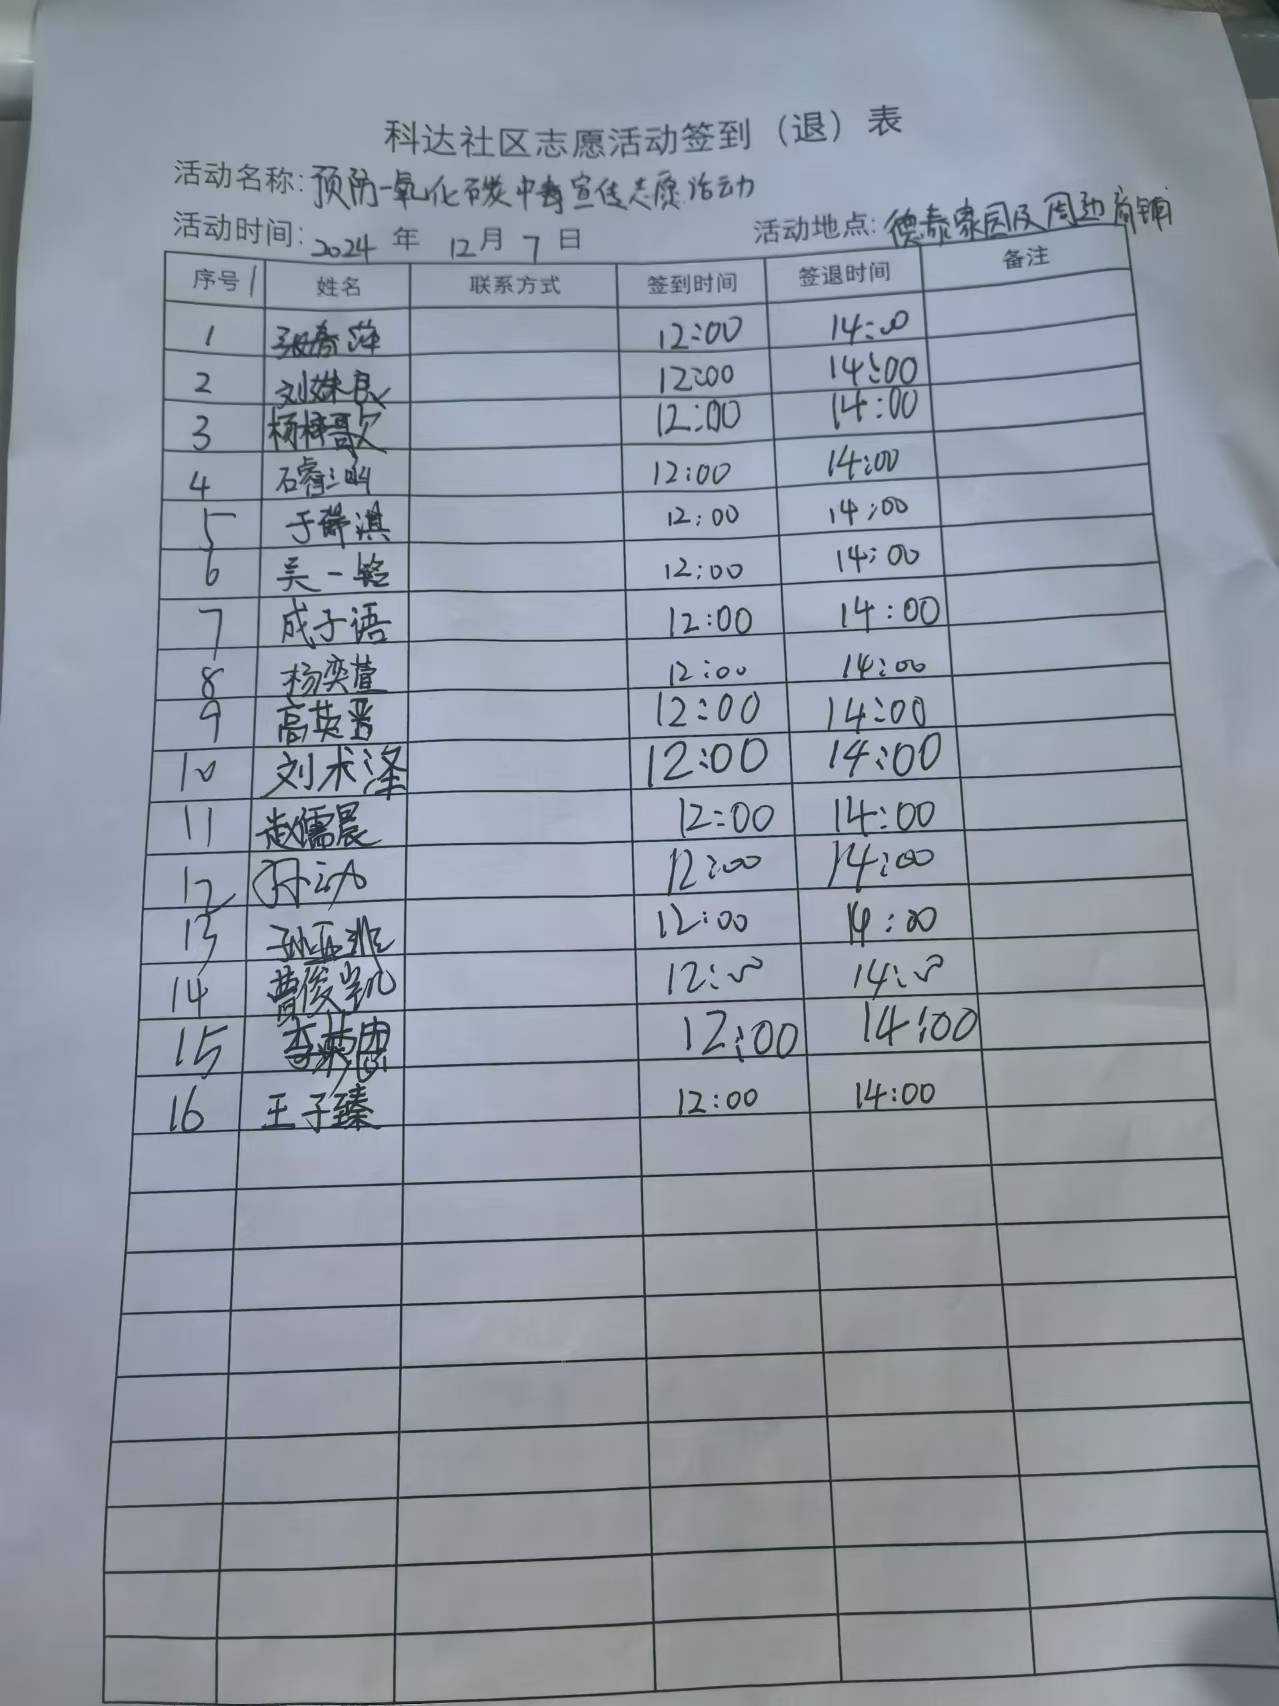 科达社区志愿活动签到（退）表
活动名称：预防一氧化碳中毒宣传志愿活动
活动时间：2024年12月7日 活动地点：德泰家园及周边商铺
序号 姓名 联系方式 签到时间 签退时间 备注
1 12:00 14:00
2 刘姝良 12:00 14:00
3 杨梓 12:00 14:00
4 石睿 12:00 14:00
5 于 淇 12:00 14:00
6 吴一铭 12:00 14:00
7 成子语 12:00 14:00
8 杨奕萱 12:00 14:00
9 高英晋 12:00 14:00
10 刘术泽 12:00 14:00
11 赵儒晨 12:00 14:00
12 12:00 14:00
13 孙亚非 12:00 14:00
14 曹俊凯 12:00 14:00
15 李 12:00 14:00
16 王子臻 12:00 14:00